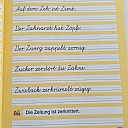 Auf dem Zeh ist Zimt.
Der Zahnarzt hat Zöpfe.
Der Zwerg zappelt zornig.
Zucker zerstört die Zähne.
Zwieback zerkrümelt zügig.
Die Zeitung ist zerknittert.